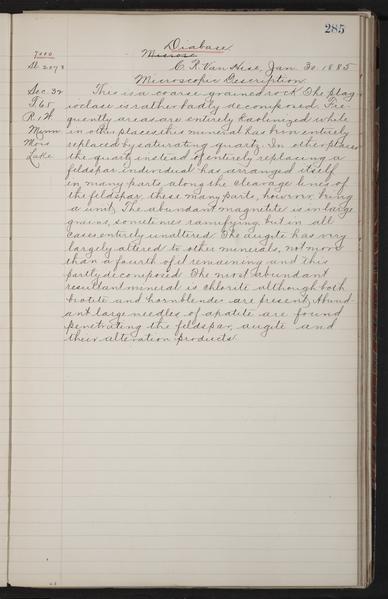 285
Diabase
Microsc
7000
Sl. 2078
C. R. Van Hise, Jan. 30, 1885
Microscopic Description.
Sec. 32
T. 65
R. 1 W
Minn
Lake
This is a coarse grained rock. The plag-
ioclase is rather badly decomposed. Fre-
quently areas are entirely kaolinized while
in other places this mineral has been entirely
replaced by saturating quartz. In other places
the quartz instead of entirely replacing a
feldspar individual has arranged itself
in many parts along the cleavage lines of
the feldspar, these many parts, however, being
a unit. The abundant magnetite is in large
grains, sometimes ramifying, but in all
cases entirely unaltered. The augite has very
largely altered to other minerals, not more
than a fourth of it remaining and this
partly decomposed. The most abundant
resultant mineral is chlorite although both
biotite and hornblende are present. Abund-
ant large needles of apatite are found
penetrating the feldspar, augite and
their alteration products.